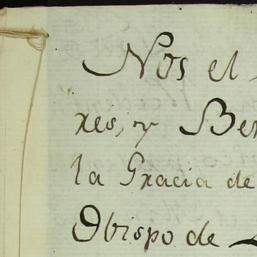 Nos el
res, y Ber
la Gracia de
Obispo de